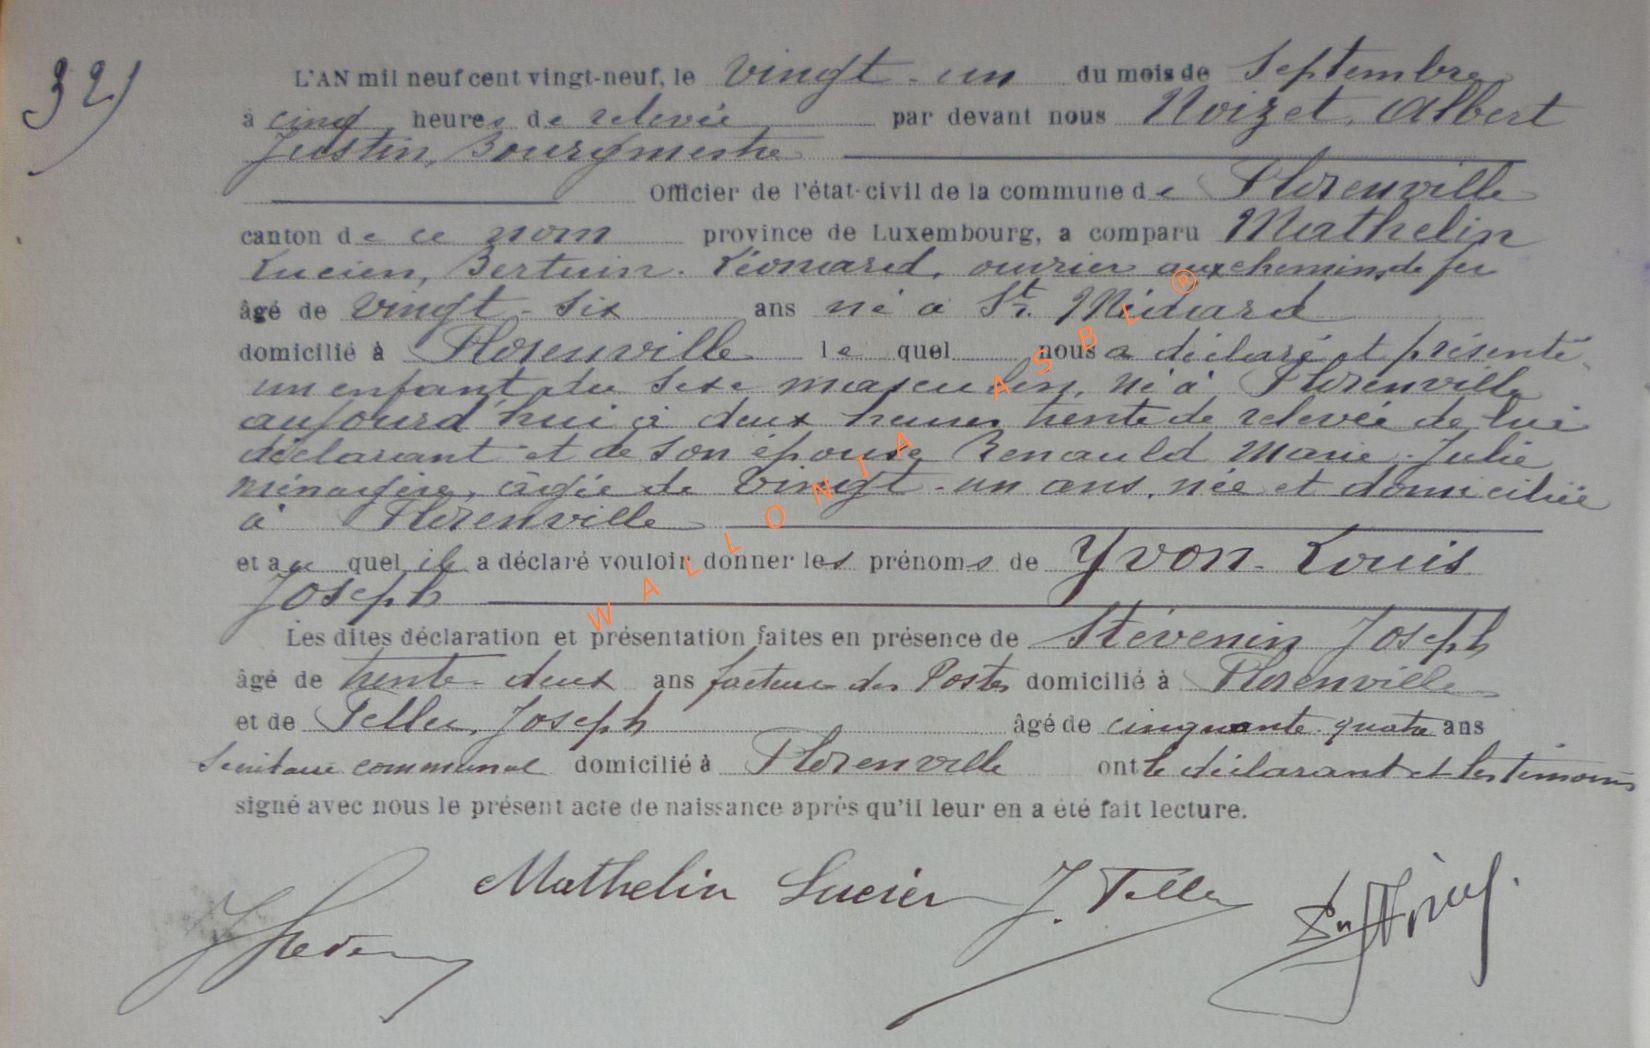 32)
L'AN mil neuf cent vingt-neuf, le vingt-un du mois de Septembre
à cinq heures de relevée par devant nous Noizet, Albert
Justin, Bourgmestre
Officier de l'état-civil de la commune de Florenville
canton de ce nom province de Luxembourg, a comparu Mathelin
Lucien, Bertuin, Léonard, ouvrier aux chemins de fer
âgé de vingt-six ans né à St. Médard
domicilié à Florenville lequel nous a déclaré et présenté
un enfant du sexe masculin, né à Florenville
aujourd'hui à deux heures trente de relevée de lui
déclarant et de son épouse Renauld Marie-Julie
ménagère, âgée de vingt-un ans, née et domiciliée
à Florenville
et auquel il a déclaré vouloir donner les prénoms de Yvon-Louis
Joseph
Les dites déclaration et présentation faites en présence de Stévenin Joseph
âgé de trente-deux ans facteur des Postes domicilié à Florenville
et de Teller, Joseph âgé de cinquante-quatre ans
Secrétaire communal domicilié à Florenville ont le déclarant et les témoins
signé avec nous le présent acte de naissance après qu'il leur en a été fait lecture.
Mathelin Lucien J. Teller
WALLONIA ASBL ®